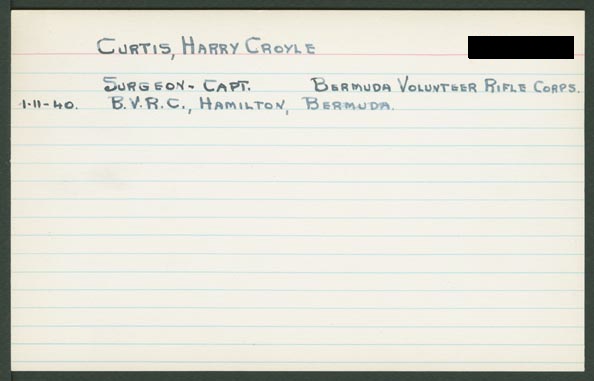 Curtis, Harry Croyle
Surgeon-Capt. Bermuda Volunteer Rifle Corps.
1-11-40. B.V.R.C., Hamilton, Bermuda.